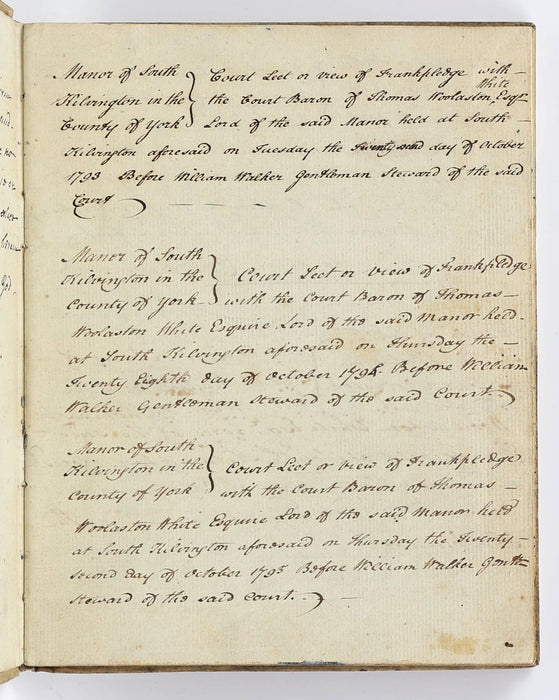 Manor of South } Court Leet or view of Frankpledge with –
White
Kilvington in the } the Court Baron of Thomas Woolaston Esqr.
County of York } Lord of the said Manor held at South –
Kilvington aforesaid on Tuesday the Twenty day of October
1793 Before William Walker Gentleman Steward of the said
Court
Manor of South
Kilvington in the } Court Leet or view of Frankpledge
County of York – with the Court Baron of Thomas –
Woolaston White Esquire Lord of the said Manor held –
at South Kilvington aforesaid on Thursday the –
Twenty Eighth day of October 1794 Before William
Walker Gentleman Steward of the said Court.
Manor of South
Kilvington in the } Court Leet or view of Frankpledge
County of York with the Court Baron of Thomas –
Woolaston White Esquire Lord of the said Manor held
at South Kilvington aforesaid on Thursday the Twenty –
second day of October 1795 Before William Walker Gentn.
Steward of the said Court. –